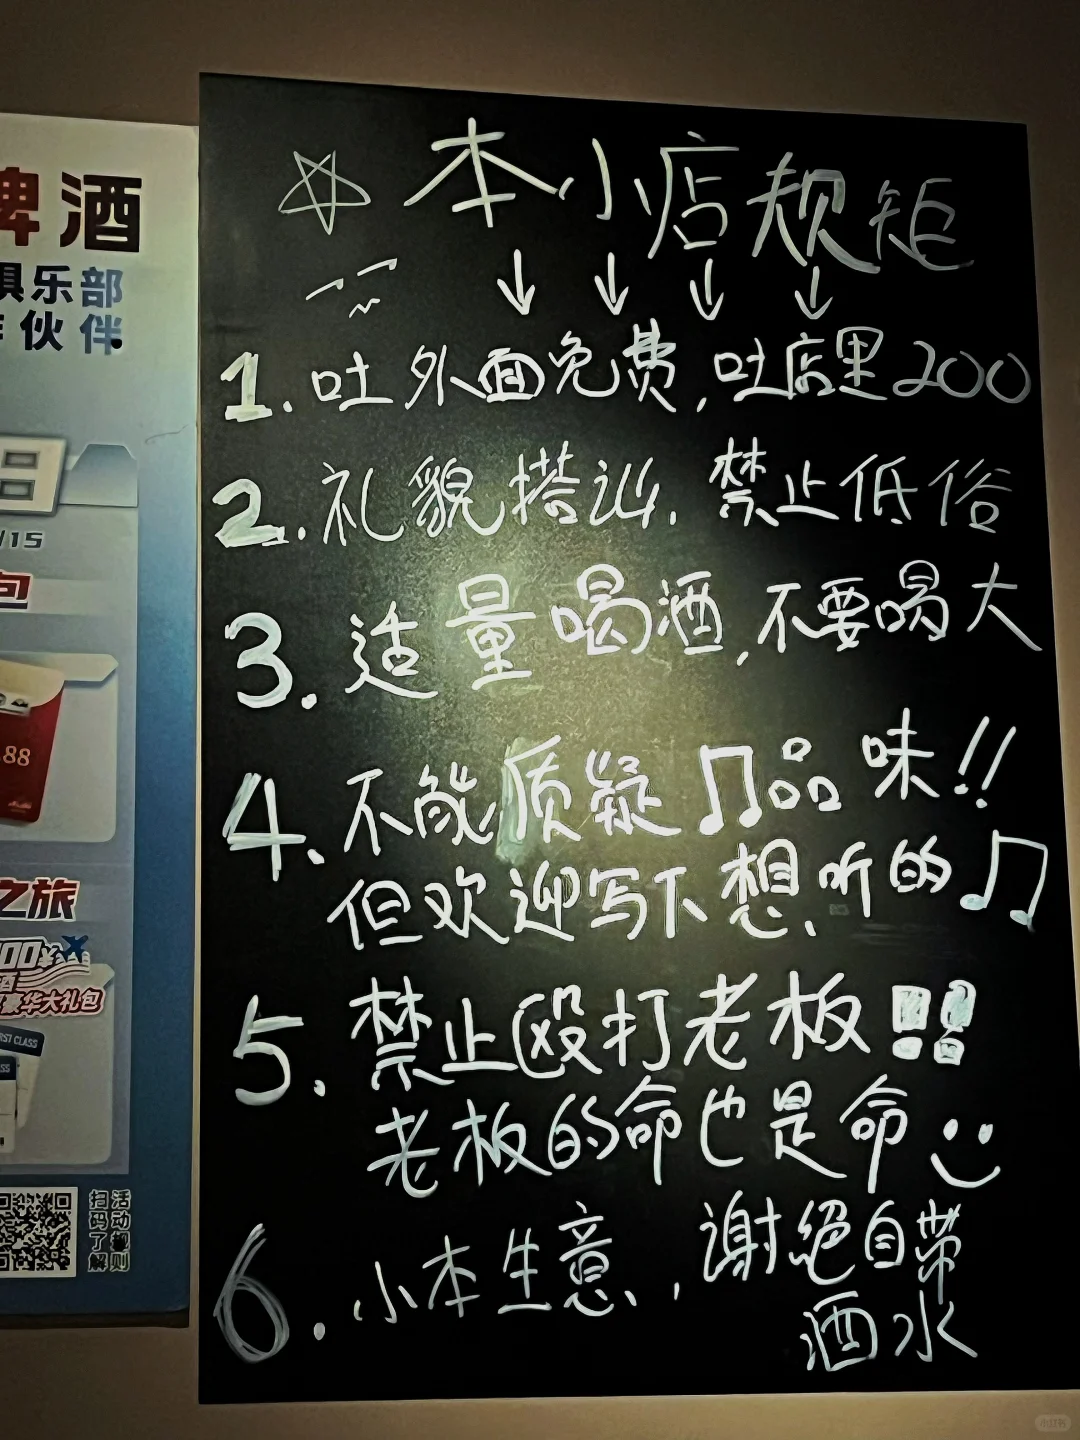 啤酒
俱乐部
作伙伴
/15
包
.88
之旅
00¥
酒
豪华大礼包
FIRST CLASS
扫活
码动
了规
解则
☆本小店规矩
↓ ↓ ↓ ↓
1.吐外面免费,吐店里200
2.礼貌搭讪.禁止低俗
3.适量喝酒,不要喝大
4.不能质疑♫品味!!
但欢迎写下想听的♫
5.禁止殴打老板!!
老板的命也是命
6.小本生意,谢绝自带
酒水
小红书